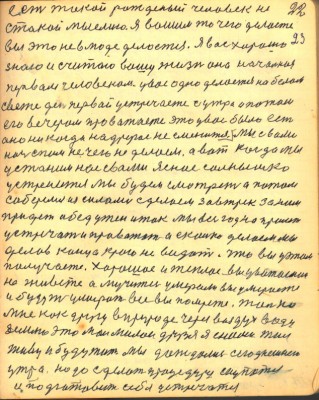 Есть такой рожденый человек не 22
с такой мыслию. Я вашим то чего делаете
вы это не в моде делается. Я вас хорошо 23
знаю и считаю вашу жизнь она начатая
первым человеком. У вас одно делается на белом
свете день первый встречаете с утра а потом
его вечером провожаете это у вас было есть
оно никогда на другое не сменится. Мы с вами
на этим нечего не делаем. а вот когда мы
устаним нас вами ясное солнышко
устренется мы будем смотреть а потом
соберемся силами сделаем завтрек за ним
придет обед ужен и так мы все годно
встречаем провожаем а сколько делаем мы
делов конца краю не видать. Это вы у этом
получаете. Хорошое и теплое вы ухитаетесь
но живете а мучитись умерали вы умераете
и будете умерать все вы помрете. Только
мне как другу в природе через воздух воду
землю это мои милаи друзя Я с ними жил
живу и будут жит мы дождалися сегоднешнего
утра. надо сделат процедуру скупатся
и подготовит себя встречатся